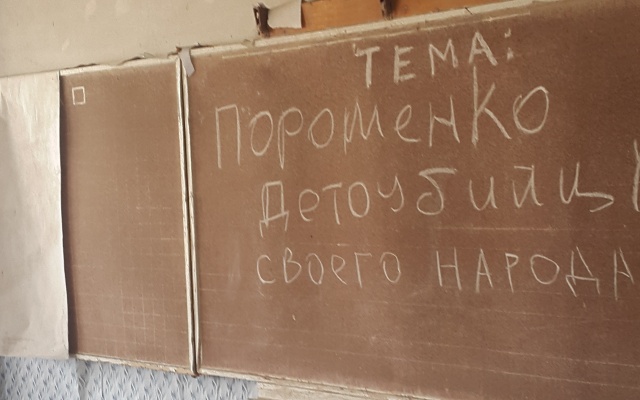 ТЕМА:
Порошенко
Детоубийцы
своего НАРОДА